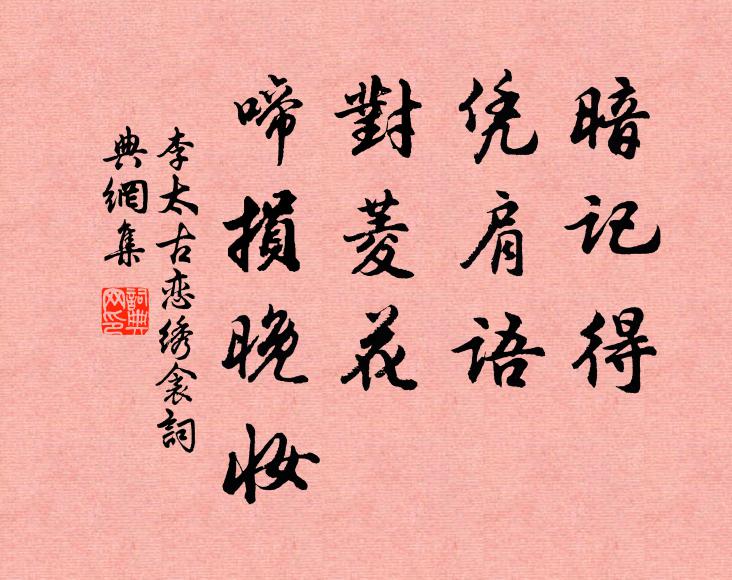 暗记得
凭肩語
對菱花
啼損晚妆
李太古恋绣衾詞
典網集
詞典网印